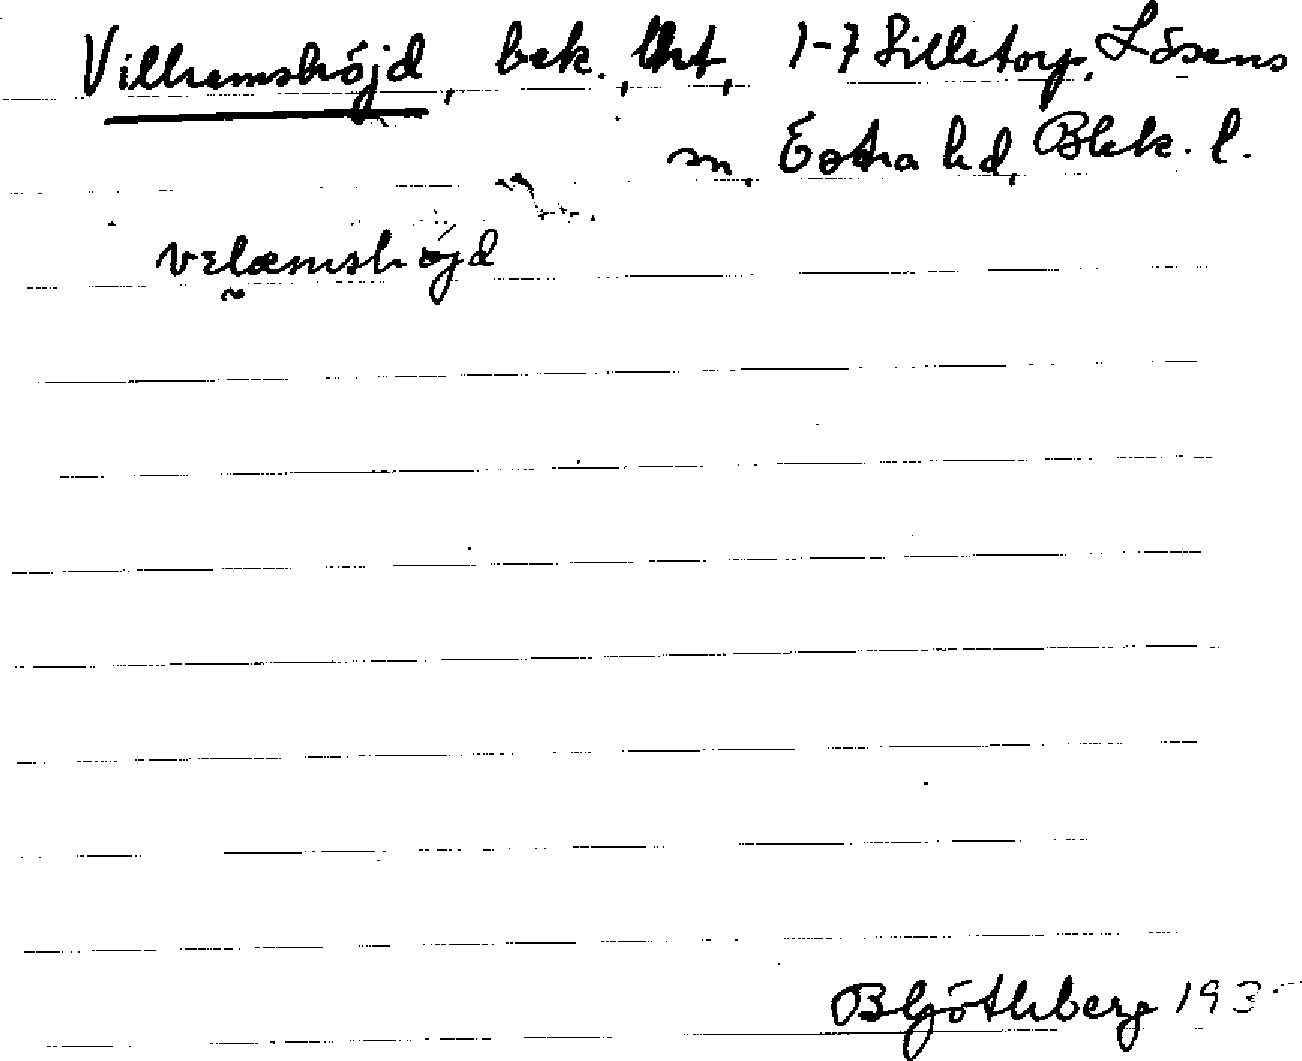 Vilhemshöjd, bek., lht, 1-7 Silletorp, Lösens
sn, Östra hd, Blek. l.
vɛlæmshöjd
B Göthberg 193